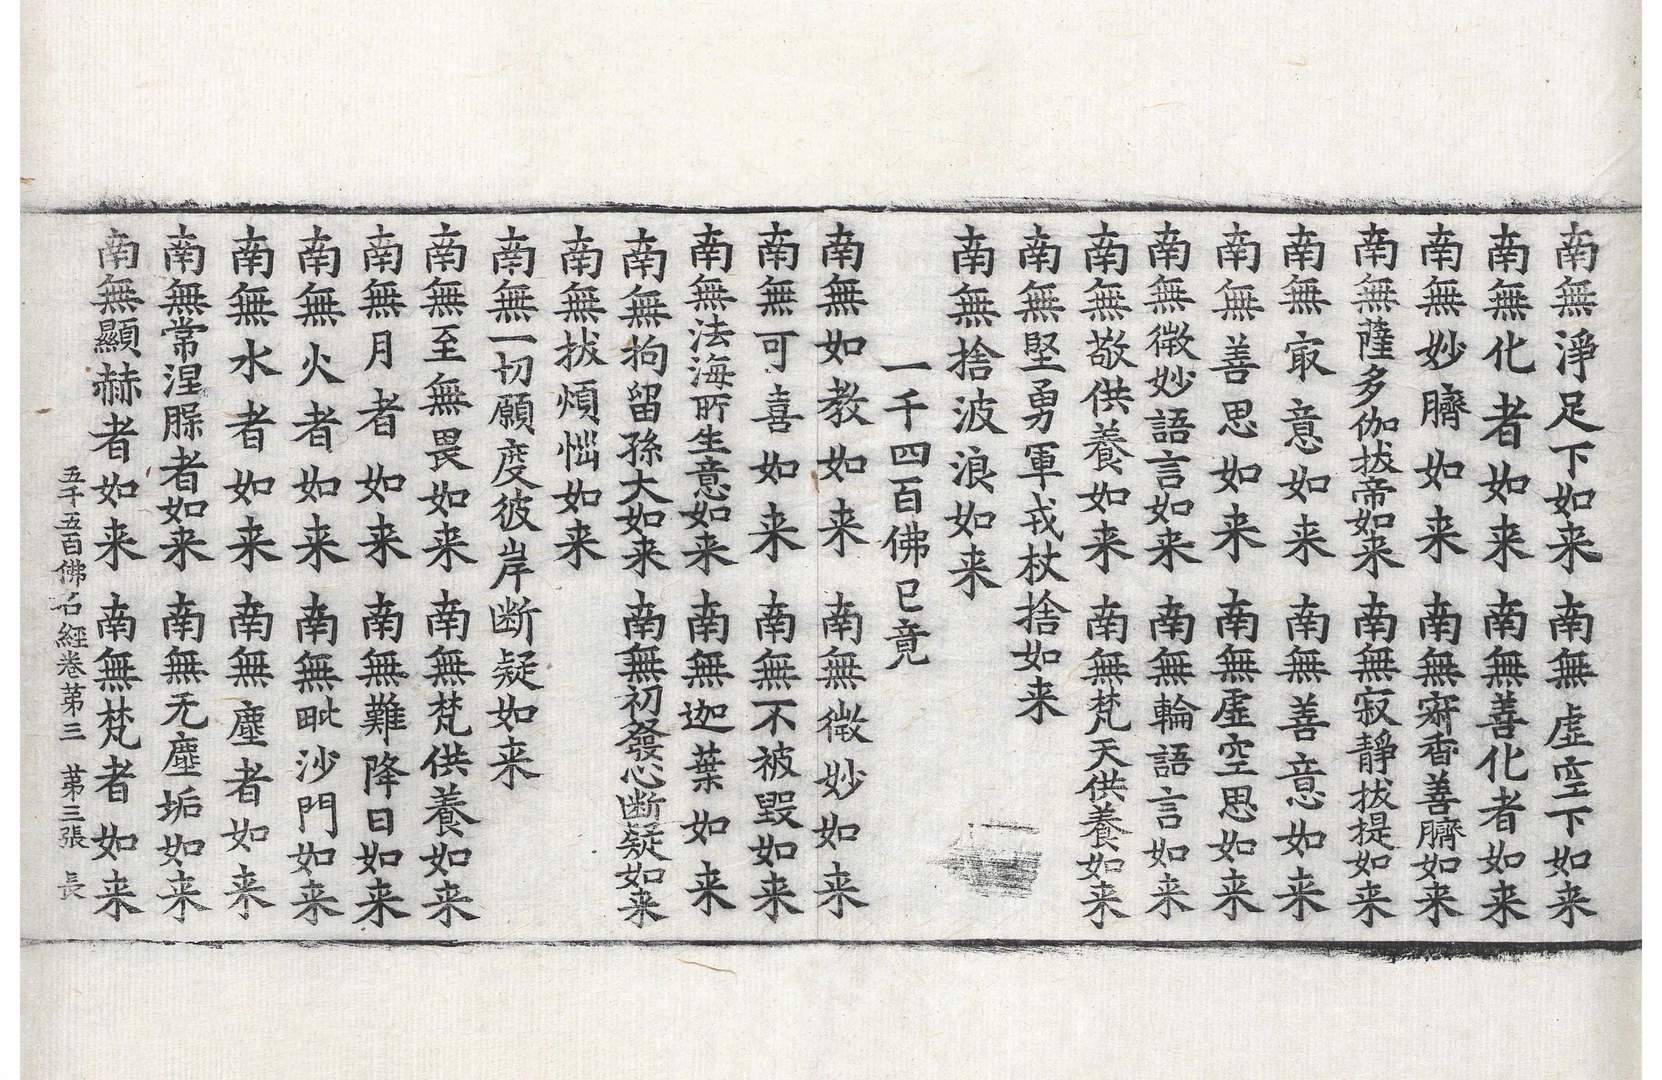 南無淨足下如来 南無虛空下如来
南無化者如来 南無善化者如来
南無妙臍如来 南無竒香善臍如来
南無薩多伽拔帝如来 南無寂靜拔提如来
南無㝡意如来 南無善意如来
南無善思如来 南無虛空思如来
南無微妙語言如来 南無輪語言如来
南無敬供養如来 南無梵天供養如来
南無堅勇軍戎杖捨如来
南無捨波浪如来
一千四百佛已竟
南無如教如来 南無微妙如来
南無可喜如来 南無不被毀如来
南無法海所生意如来 南無迦葉如来
南無拘留孫大如来 南無初發心断疑如来
南無拔煩惱如来
南無一切願度彼岸断疑如来
南無至無畏如来 南無梵供養如来
南無月者如来 南無難降日如来
南無火者如来 南無毗沙門如来
南無水者如来 南無塵者如来
南無常涅者如来 南無无塵垢如来
南無顯赫者如来 南無梵者如来
五千五百佛名經卷苐三 苐三張 長